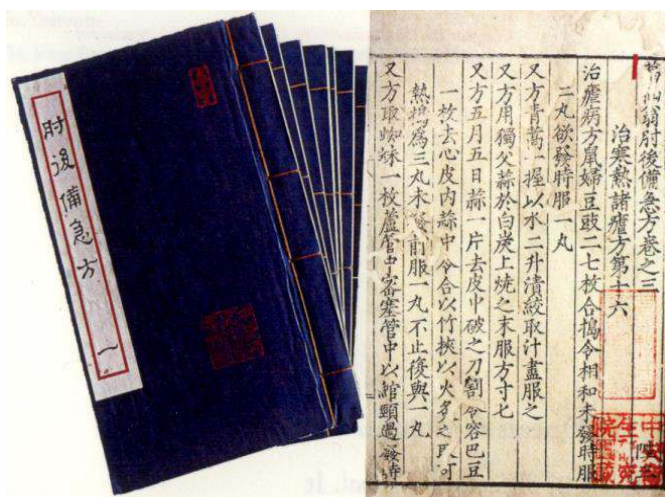 肘後備急方 一
翁肘後備急方卷之三
治寒熱諸瘧方第十六
治瘧病方鼠婦豆豉二七枚合搗令相和未發時服
二丸欲發時服一丸
又方青蒿一握以水二升漬絞取汁盡服之
又方用獨父蒜於白炭上燒之末服方寸七
又方五月五日蒜一片去皮中破之刀割令容巴豆
一枚去心皮内蒜中令合以竹挾以火炙之取可
熱搗爲三丸未發前服一丸不止復與一丸
又方取蜘蛛一枚蘆管中密塞管中以綰頸過發時